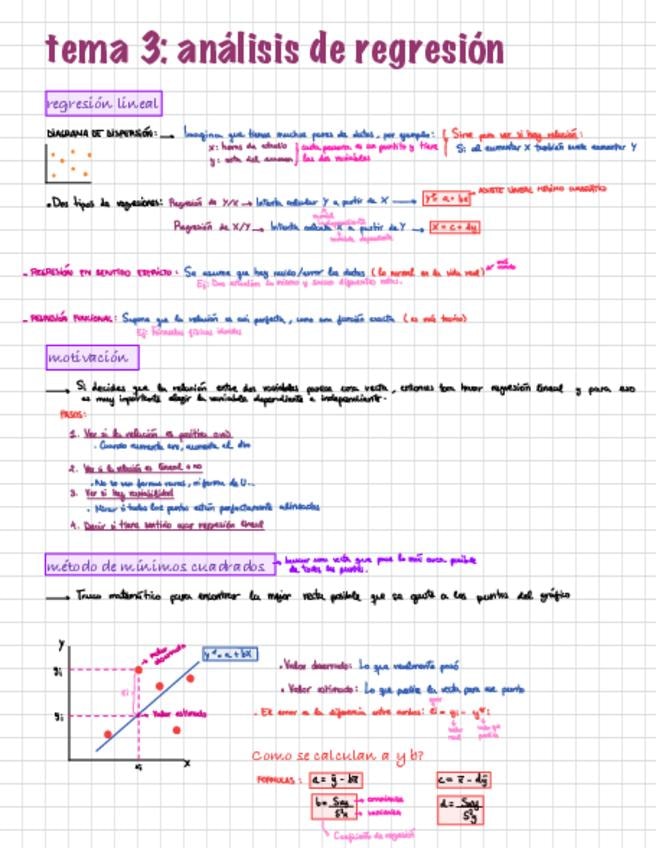 tema 3: análisis de regresión
regresión lineal
DIAGRAMA DE DISPERSIÓN: → Imagina que tienes muchos pares de datos, por ejemplo: Sirve para ver si hay relación:
x: horas de estudio cada persona es un puntito y tiene Si al aumentar X también suele aumentar Y
y: nota del examen las dos variables
• Dos tipos de regresiones: Regresión de Y/X → Intenta calcular Y a partir de X → y* = a + bx AJUSTE LINEAL MÍNIMO CUADRÁTICO
variable independiente
Regresión de X/Y → Intenta calcular X a partir de Y → x = c + dy
variable dependiente
- REGRESIÓN EN SENTIDO ESTRICTO: Se asume que hay ruido/error la datos (lo normal en la vida real)
Ej: Dos estudian lo mismo y sacan diferentes notas.
- REGRESIÓN FUNCIONAL: Supone que la relación es casi perfecta, como una función exacta (es más teórico)
Ej: Fórmulas físicas ideales
motivación
→ Si decides que la relación entre dos variables parece una recta, entonces toca hacer regresión lineal y para eso
es muy importante elegir la variable dependiente e independiente.
PASOS:
1. Ver si la relación es positiva o no
• Cuando aumenta uno, aumenta el otro
2. Ver si la relación es lineal o no
• No se ven formas raras, ni forma de U...
3. Ver si hay variabilidad
• Mirar si todos los puntos están perfectamente alineados
4. Decidir si tiene sentido usar regresión lineal
método de mínimos cuadrados → buscar una recta que pase lo más cerca posible
de todos los puntos.
→ Truco matemático para encontrar la mejor recta posible que se ajuste a los puntos del gráfico
y
valor observado
y* = a + bx
yi
ei
yi
valor estimado
xi
x
• Valor observado: Lo que realmente pasó
• Valor estimado: Lo que predice la recta para ese punto
- El error es la diferencia entre ambos: ei = yi - y*i
error
valor real
valor que predice
Como se calculan a y b?
FÓRMULAS: a = ȳ - bx̄ c = x̄ - dȳ
b = Sxy / S²x → covarianza
→ varianza
d = Sxy / S²y
Coeficiente de regresión